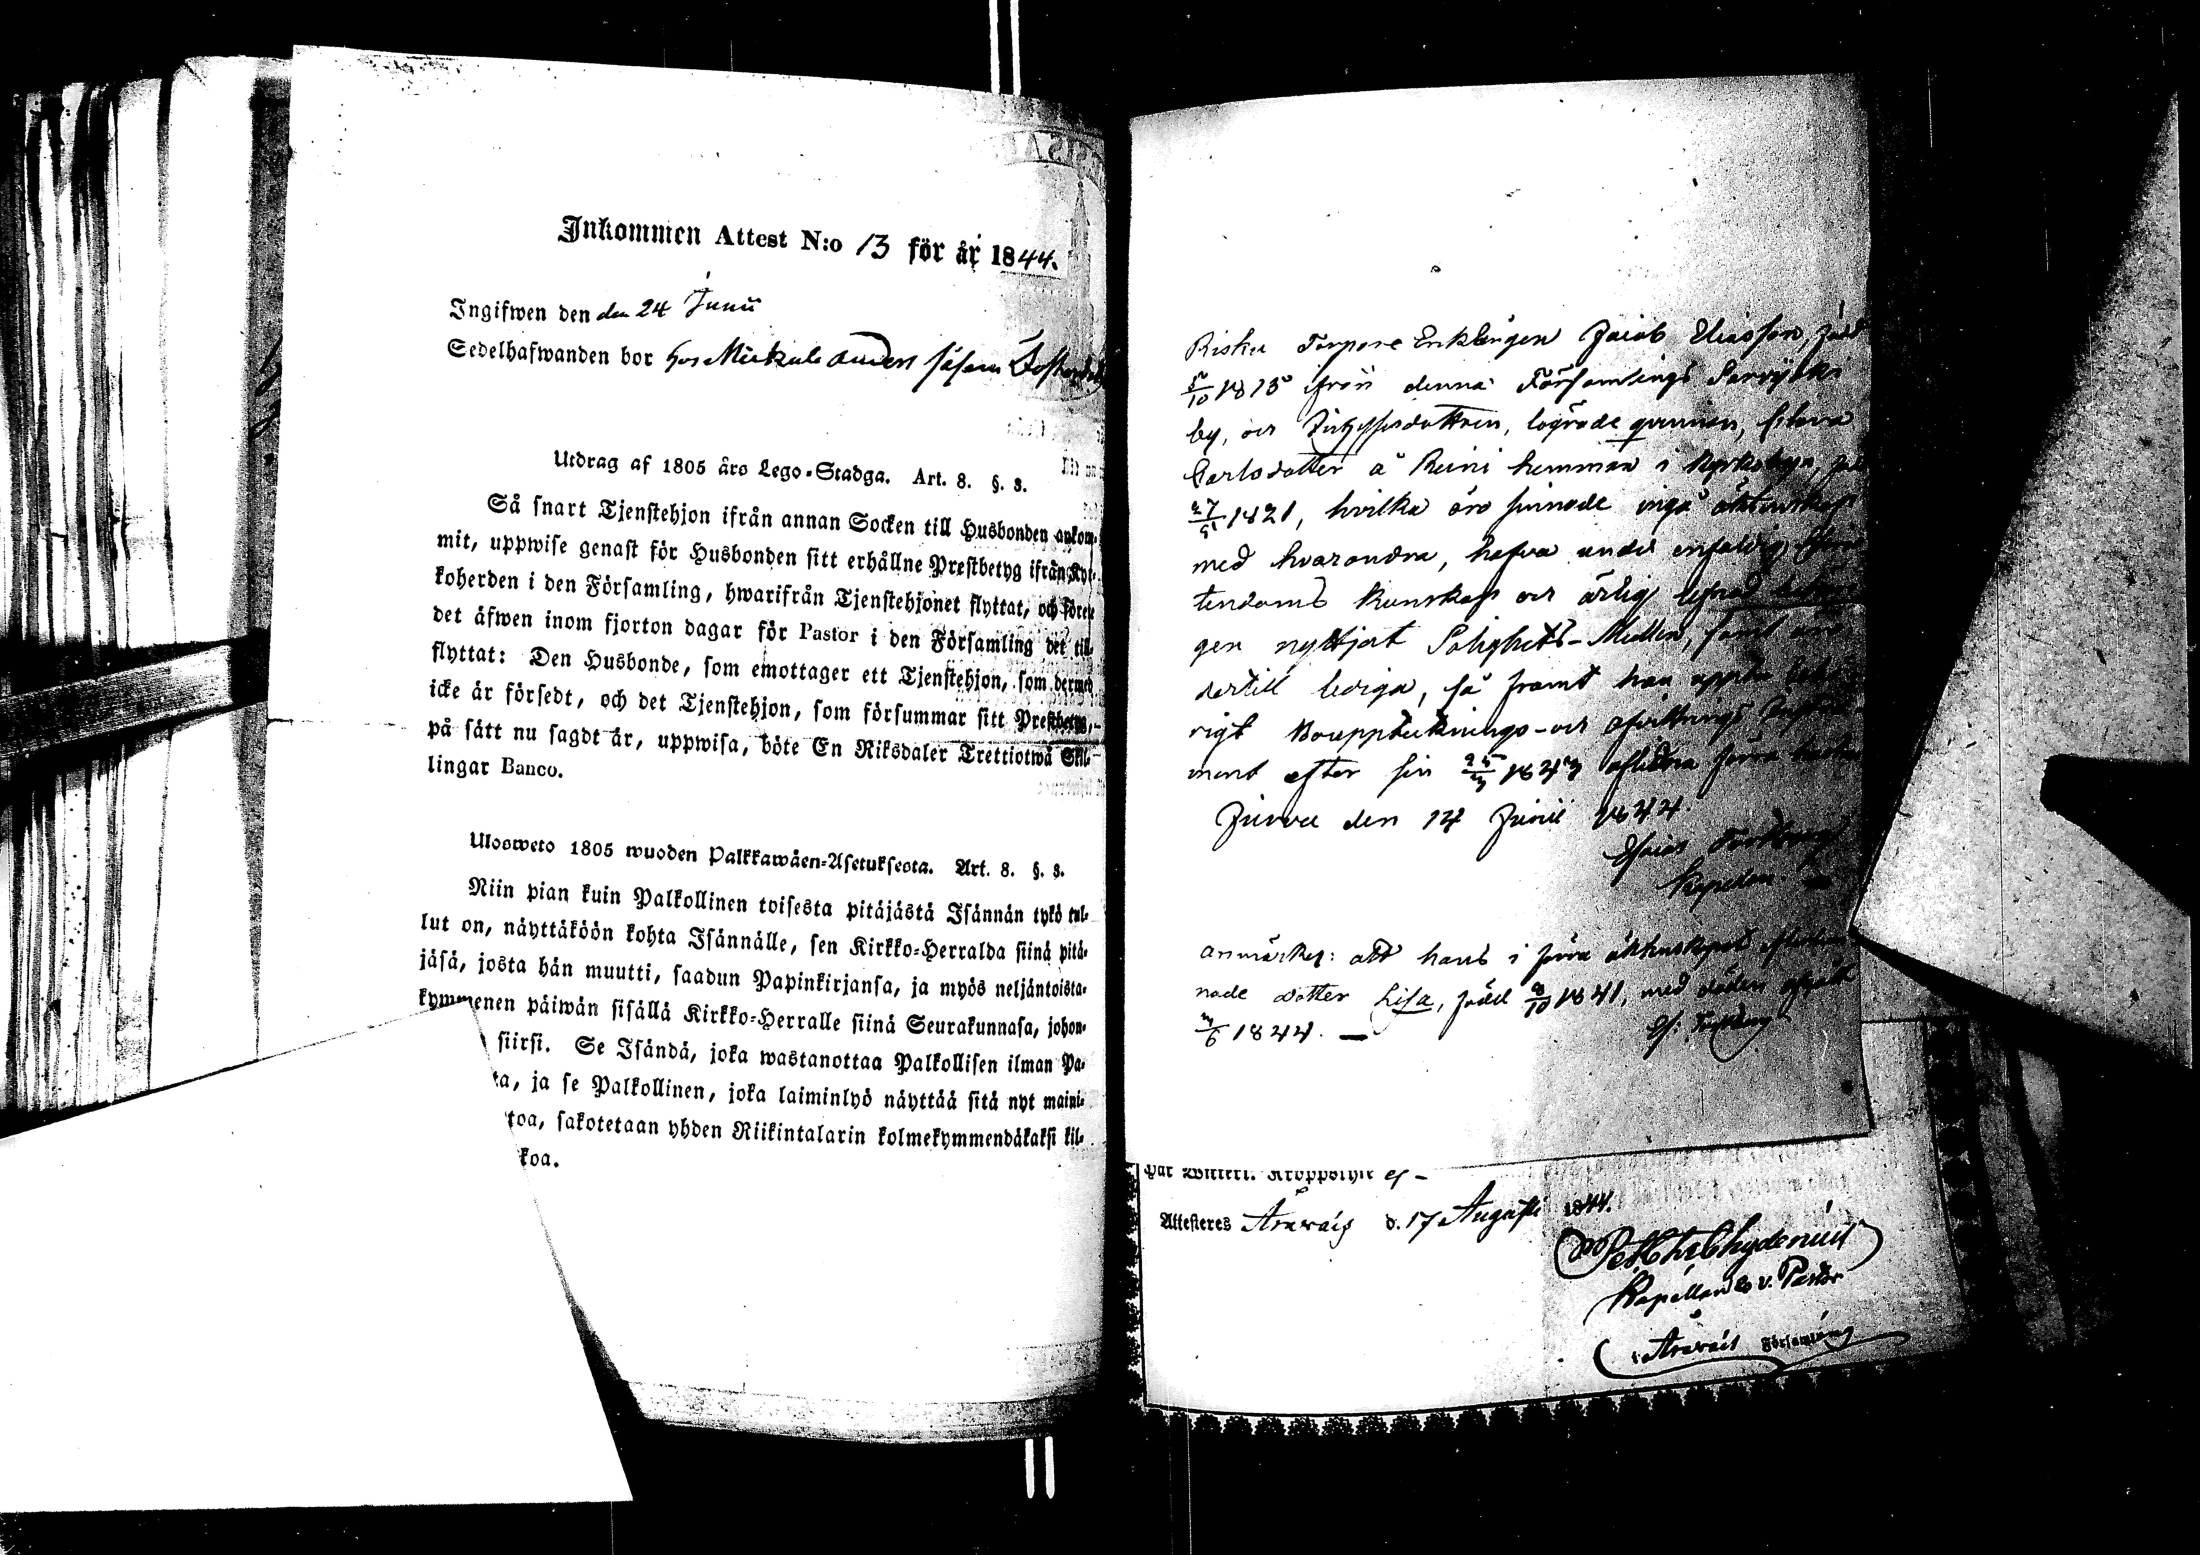 Inkommen Attest N:o 13 för år 1844.
Ingifwen den den 24 Junii
Sedelhafwanden bor hos Mickals Anders
Utdrag af 1805 års Lego-Stadga. Art. 8. §. 3.
Så snart Tjenstehjon ifrån annan Socken till Husbonden ankom-
mit, uppwise genast för Husbonden sitt erhållne Prestbetyg ifrån Kyr-
koherden i den Församling, hwarifrån Tjenstehjonet flyttat, och förete
det äfwen inom fjorton dagar för Pastor i den Församling det till-
flyttat: Den Husbonde, som emottager ett Tjenstehjon, som dermed
icke är försedt, och det Tjenstehjon, som försummar sitt Prestbetyg,
på sätt nu sagdt är, uppwisa, böte En Riksdaler Trettiotwå Skil-
lingar Banco.
Ulosweto 1805 wuoden Palkkawäen-Asetuksesta. Art. 8. §. 3.
Niin pian kuin Palkollinen toisesta pitäjästä Isännän tykö tul-
lut on, näyttäköön kohta Isännälle, sen Kirkko-Herralda siinä pitä-
jäsä, josta hän muutti, saadun Papinkirjansa, ja myös neljäntoista-
kymmenen päiwän sisällä Kirkko-Herralle siinä Seurakunnasa, johon-
siirsi. Se Isändä, joka wastanottaa Palkollisen ilman Pa-
ta, ja se Palkollinen, joka laiminlyö näyttää sitä nyt maini-
toa, sakotetaan yhden Riikintalarin kolmekymmendäkaksi kil-
koa.
Risku Torpare Enklingen Jacob Eliasson, född
5/10 1815 från denna Församlings
by, och lägrade qvinnan,
Carlsdotter å Reini hemman i Kyrkobyn,
27/5 1821, hvilka äro sinnade ingå äktenskap
med hvarandra, hafva under enfaldig
tendoms kunskap och ärlig lefnad
gen nyttjat Salighets-Medlen, samt äro
dertill lediga, så framt han
rigt Bouppteknings- och afvittrings
ment efter sin 1843 aflidna förra hustru
Jurva den 14 Junii 1844.
Esaias
Kapellan.
anmärkes: att hans i förra äktenskapet
nade dotter Lisa, född 8/10 1841, med döden afgått
/6 1844. —
Es:
Attesteres Arawais d. 17 Augusti 1844.
Chydenius
Kapellan & v. Pastor
i Arawais Församling